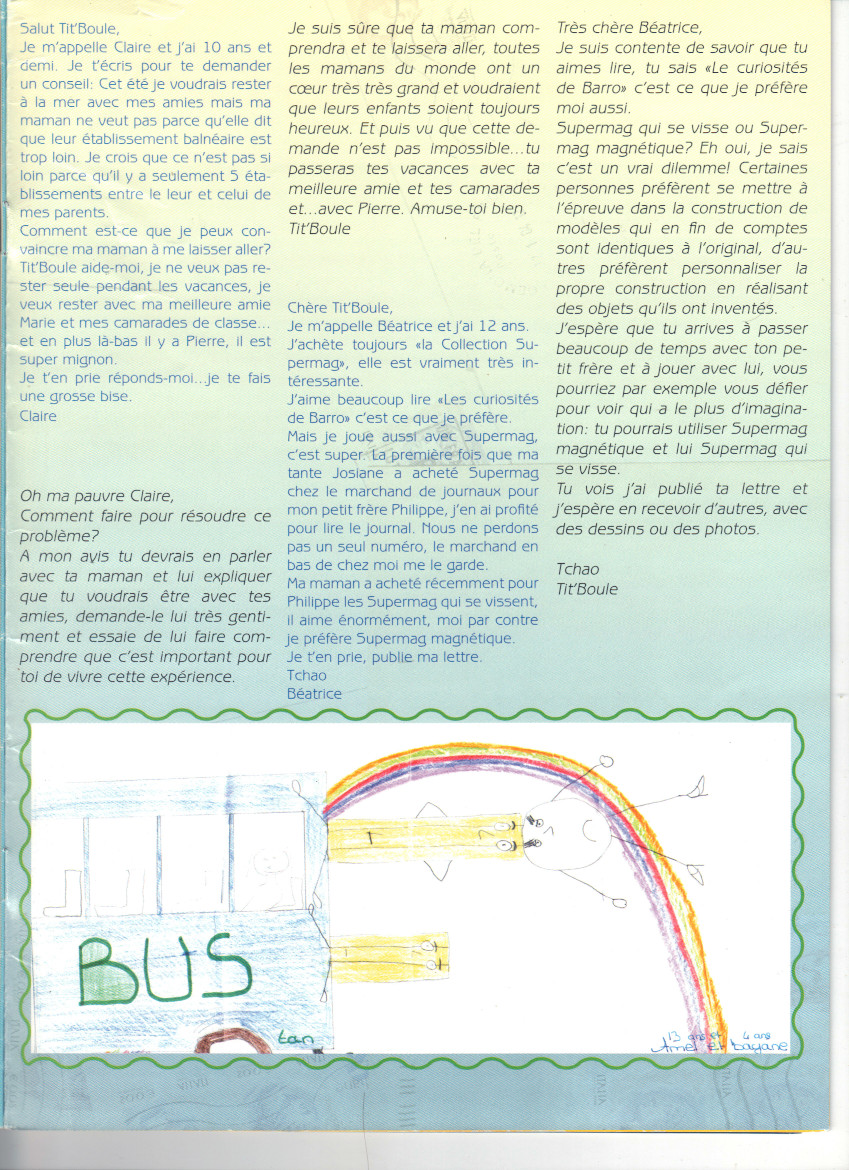 Salut Tit'Boule,
Je m'appelle Claire et j'ai 10 ans et
demi. Je t'écris pour te demander
un conseil: Cet été je voudrais rester
à la mer avec mes amies mais ma
maman ne veut pas parce qu'elle dit
que leur établissement balnéaire est
trop loin. Je crois que ce n'est pas si
loin parce qu'il y a seulement 5 éta-
blissements entre le leur et celui de
mes parents.
Comment est-ce que je peux con-
vaincre ma maman à me laisser aller?
Tit'Boule aide-moi, je ne veux pas re-
ster seule pendant les vacances, je
veux rester avec ma meilleure amie
Marie et mes camarades de classe...
et en plus là-bas il y a Pierre, il est
super mignon.
Je t'en prie réponds-moi...je te fais
une grosse bise.
Claire
Oh ma pauvre Claire,
Comment faire pour résoudre ce
problème?
A mon avis tu devrais en parler
avec ta maman et lui expliquer
que tu voudrais être avec tes
amies, demande-le lui très genti-
ment et essaie de lui faire com-
prendre que c'est important pour
toi de vivre cette expérience.
Je suis sûre que ta maman com-
prendra et te laissera aller, toutes
les mamans du monde ont un
cœur très très grand et voudraient
que leurs enfants soient toujours
heureux. Et puis vu que cette de-
mande n'est pas impossible...tu
passeras tes vacances avec ta
meilleure amie et tes camarades
et...avec Pierre. Amuse-toi bien.
Tit'Boule
Chère Tit'Boule,
Je m'appelle Béatrice et j'ai 12 ans.
J'achète toujours «la Collection Su-
permag», elle est vraiment très in-
téressante.
J'aime beaucoup lire «Les curiosités
de Barro» c'est ce que je préfère.
Mais je joue aussi avec Supermag,
c'est super. La première fois que ma
tante Josiane a acheté Supermag
chez le marchand de journaux pour
mon petit frère Philippe, j'en ai profité
pour lire le journal. Nous ne perdons
pas un seul numéro, le marchand en
bas de chez moi me le garde.
Ma maman a acheté récemment pour
Philippe les Supermag qui se vissent,
il aime énormément, moi par contre
je préfère Supermag magnétique.
Je t'en prie, publie ma lettre.
Tchao
Béatrice
Très chère Béatrice,
Je suis contente de savoir que tu
aimes lire, tu sais «Le curiosités
de Barro» c'est ce que je préfère
moi aussi.
Supermag qui se visse ou Super-
mag magnétique? Eh oui, je sais
c'est un vrai dilemme! Certaines
personnes préfèrent se mettre à
l'épreuve dans la construction de
modèles qui en fin de comptes
sont identiques à l'original, d'au-
tres préfèrent personnaliser la
propre construction en réalisant
des objets qu'ils ont inventés.
J'espère que tu arrives à passer
beaucoup de temps avec ton pe-
tit frère et à jouer avec lui, vous
pourriez par exemple vous défier
pour voir qui a le plus d'imagina-
tion: tu pourrais utiliser Supermag
magnétique et lui Supermag qui
se visse.
Tu vois j'ai publié ta lettre et
j'espère en recevoir d'autres, avec
des dessins ou des photos.
Tchao
Tit'Boule
BUS
tan
13 ans et 4 ans
Amel et